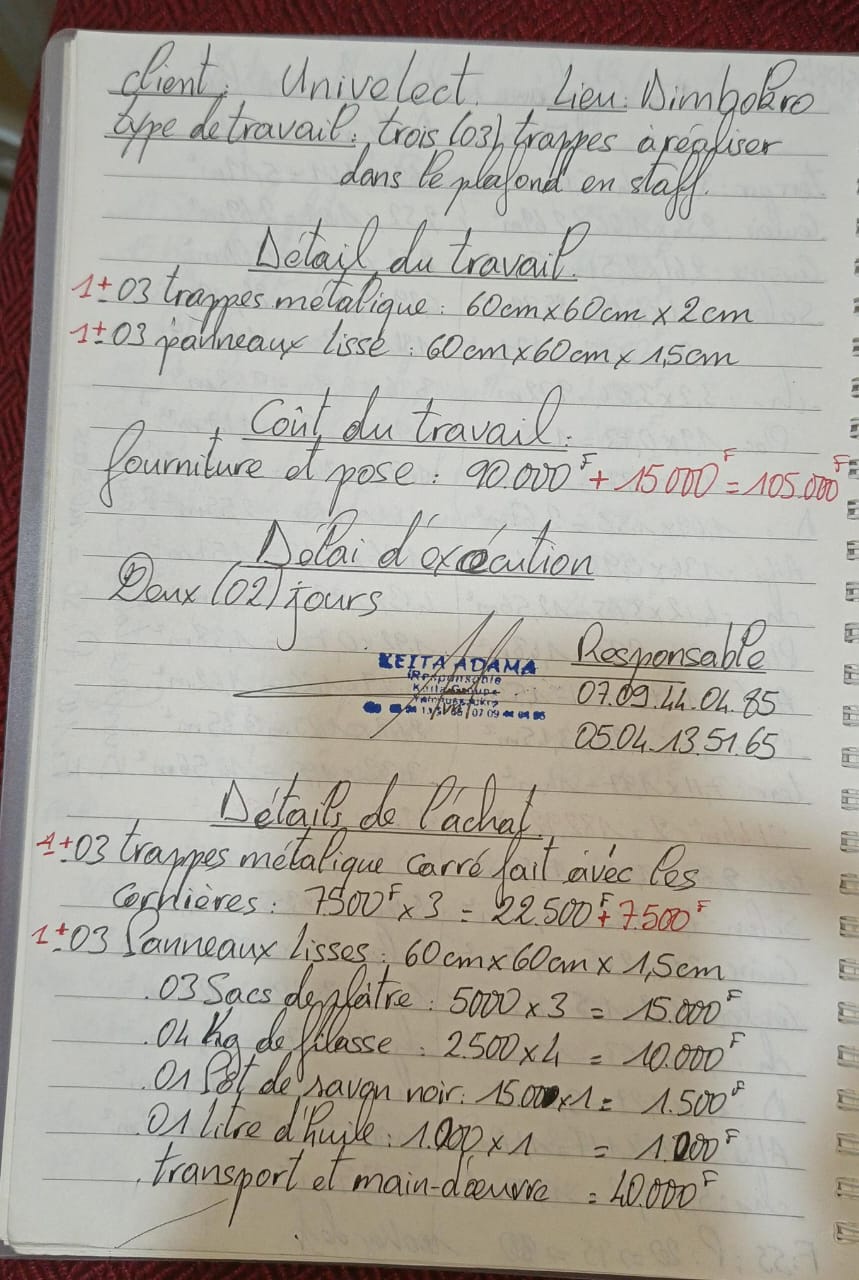 client: Univelect. Lieu: Dimbokro
type de travail: trois (03) trappes à réaliser
dans le plafond en staff.
Détail du travail.
1± 03 trappes métalique: 60cm x 60cm x 2cm
1± 03 panneaux lisse: 60cm x 60cm x 1,5cm
Coût du travail:
fourniture et pose: 90.000F + 15000F = 105.000F
Délai d'exécution
Deux (02) jours
Responsable
KEITA ADAMA
Responsable
Keita Groupe
07.09.44.04.85
05.04.13.51.65
Détails de l'achat
1± 03 trappes métalique carré fait avec les
cornières: 7500F x 3 = 22.500F + 7.500F
1± 03 Panneaux lisses: 60cm x 60cm x 1,5cm
.03 Sacs de plâtre: 5000 x 3 = 15.000F
.04 Kg de filasse: 2.500 x 4 = 10.000F
.01 Pot de savon noir: 15.000 x 1 = 1.500F
.01 litre d'huile: 1.000 x 1 = 1.000F
.transport et main-d'œuvre = 40.000F